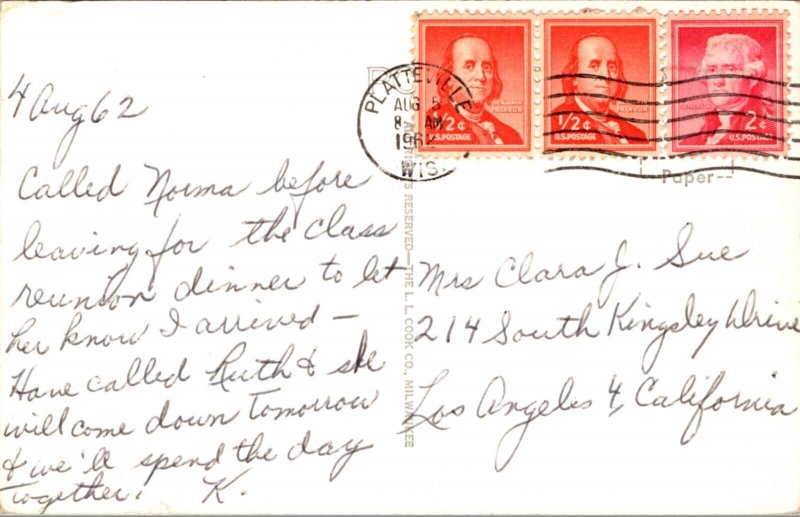 4 Aug 62
Called Norma before
leaving for the class
reunion dinner to let
her know I arrived –
Have called Ruth & she
will come down Tomorrow
& we'll spend the day
together. K.
PLATTEVILLE
AUG 5
8 AM
1962
WIS.
BENJAMIN FRANKLIN
1/2¢
U.S. POSTAGE
BENJAMIN FRANKLIN
1/2¢
U.S. POSTAGE
JEFFERSON
2¢
U.S. POSTAGE
Paper--
RIGHTS RESERVED—THE L. L. COOK CO., MILWAUKEE
Mrs Clara J. Sue
214 South Kingsley Drive
Los Angeles 4, California